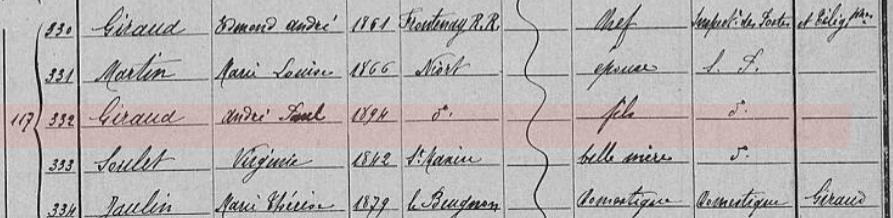 330 Giraud Edmond André 1861 Frontenay R.R. Chef Inspect. des Postes et Télég.
331 Martin Marie Louise 1866 Niort épouse S. P.
117 332 Giraud André Paul 1894 d°. fils d°.
333 Soulet Virginie 1842 St Maxire belle mère d°.
334 Paulin Marie Thérèse 1879 le Beugnon domestique domestique Giraud